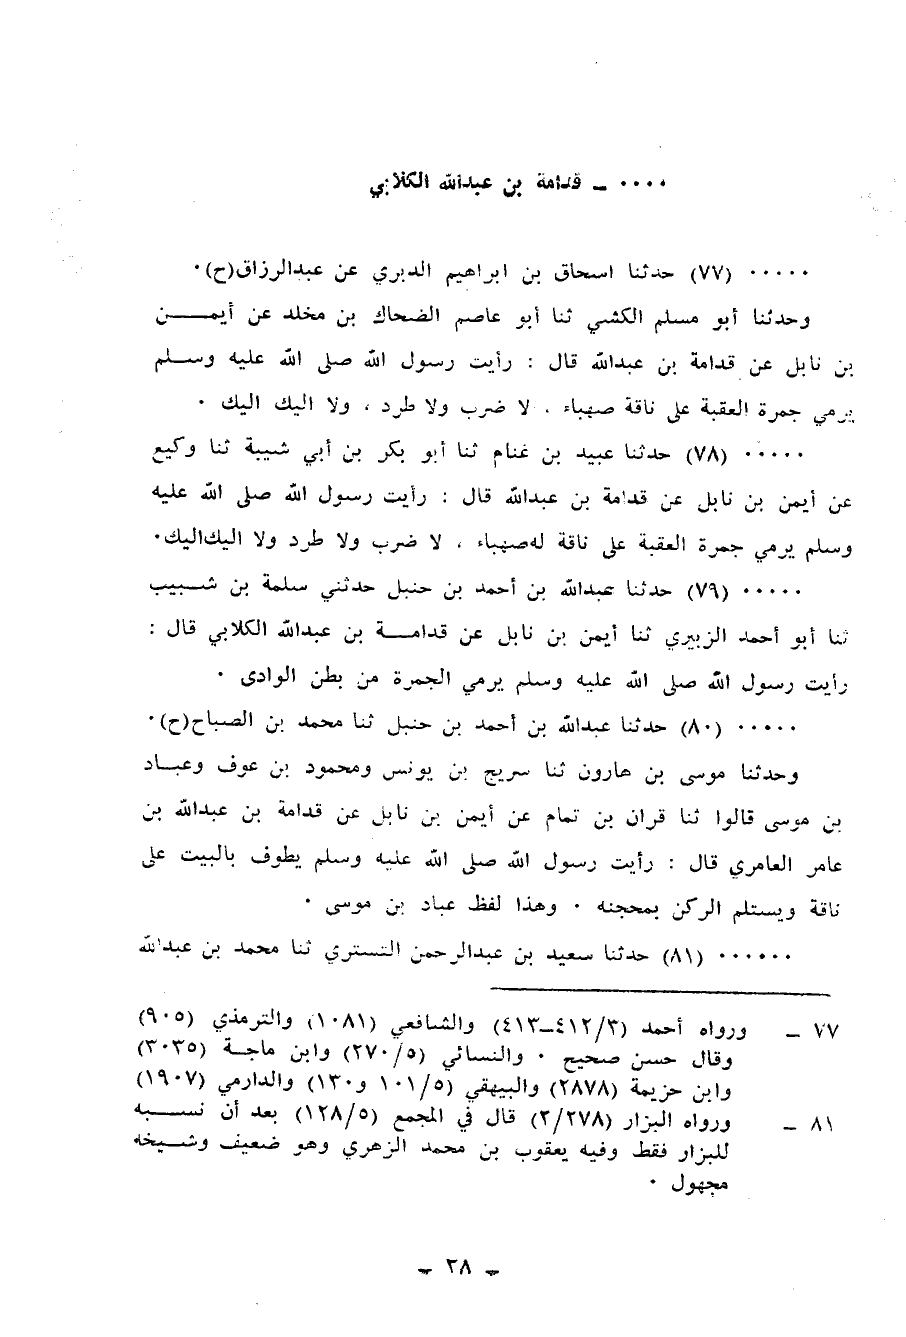 ٠٠٠٠ ــ قدامة بن عبدالله الكلابي
٠٠٠٠٠ (٧٧) حدثنا اسحاق بن ابراهيم الدبري عن عبدالرزاق(ح)٠
وحدثنا أبو مسلم الكشي ثنا أبو عاصم الضحاك بن مخلد عن أيمـــن
بن نابل عن قدامة بن عبدالله قال : رأيت رسول الله صلى الله عليه وســلم
يرمي جمرة العقبة على ناقة صهباء ، لا ضرب ولا طرد ، ولا اليك اليك ٠
٠٠٠٠٠ (٧٨) حدثنا عبيد بن غنام ثنا أبو بكر بن أبي شيبة ثنا وكيع
عن أيمن بن نابل عن قدامة بن عبدالله قال : رأيت رسول الله صلى الله عليه
وسلم يرمي جمرة العقبة على ناقة له صهباء ، لا ضرب ولا طرد ولا اليك اليك٠
٠٠٠٠٠ (٧٩) حدثنا عبدالله بن أحمد بن حنبل حدثني سلمة بن شــبيب
ثنا أبو أحمد الزبيري ثنا أيمن بن نابل عن قدامــة بن عبدالله الكلابي قال :
رأيت رسول الله صلى الله عليه وسلم يرمي الجمرة من بطن الوادى ٠
٠٠٠٠٠ (٨٠) حدثنا عبدالله بن أحمد بن حنبل ثنا محمد بن الصباح(ح)٠
وحدثنا موسى بن هارون ثنا سريج بن يونس ومحمود بن عوف وعبــاد
بن موسى قالوا ثنا قران بن تمام عن أيمن بن نابل عن قدامة بن عبدالله بن
عامر العامري قال : رأيت رسول الله صلى الله عليه وسلم يطوف بالبيت على
ناقة ويستلم الركن بمحجنه ٠ وهذا لفظ عباد بن موسى ٠
٠٠٠٠٠٠ (٨١) حدثنا سعيد بن عبدالرحمن التستري ثنا محمد بن عبدالله
٧٧ ــ ورواه أحمد (٣/٤١٢ــ٤١٣) والشافعي (١٠٨١) والترمذي (٩٠٥)
وقال حسن صحيح ٠ والنسائي (٥/٢٧٠) وابن ماجــة (٣٠٣٥)
وابن خزيمة (٢٨٧٨) والبيهقي (٥/١٠١ و١٣٠) والدارمي (١٩٠٧)
٨١ ــ ورواه البزار (٢/٢٧٨) قال في المجمع (٥/١٢٨) بعد أن نســـبه
للبزار فقط وفيه يعقوب بن محمد الزهري وهو ضعيف وشــيخه
مجهول ٠
ــ ٢٨ ــ